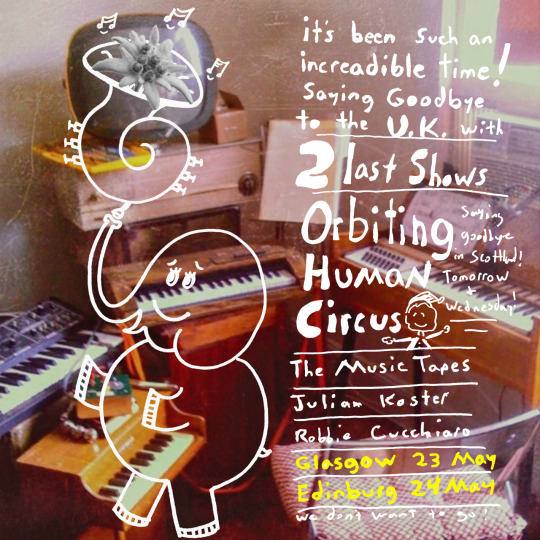 it's been such an
increadible time!
Saying Goodbye
to the U.K. with
2 last Shows
Orbiting
Human
Circus
Saying
goodbye
in Scotland!
Tomorrow
+
Wednesday!
The Music Tapes
Julian Koster
Robbie Cucchiaro
Glasgow 23 May
Edinburg 24 May
we don't want to go!